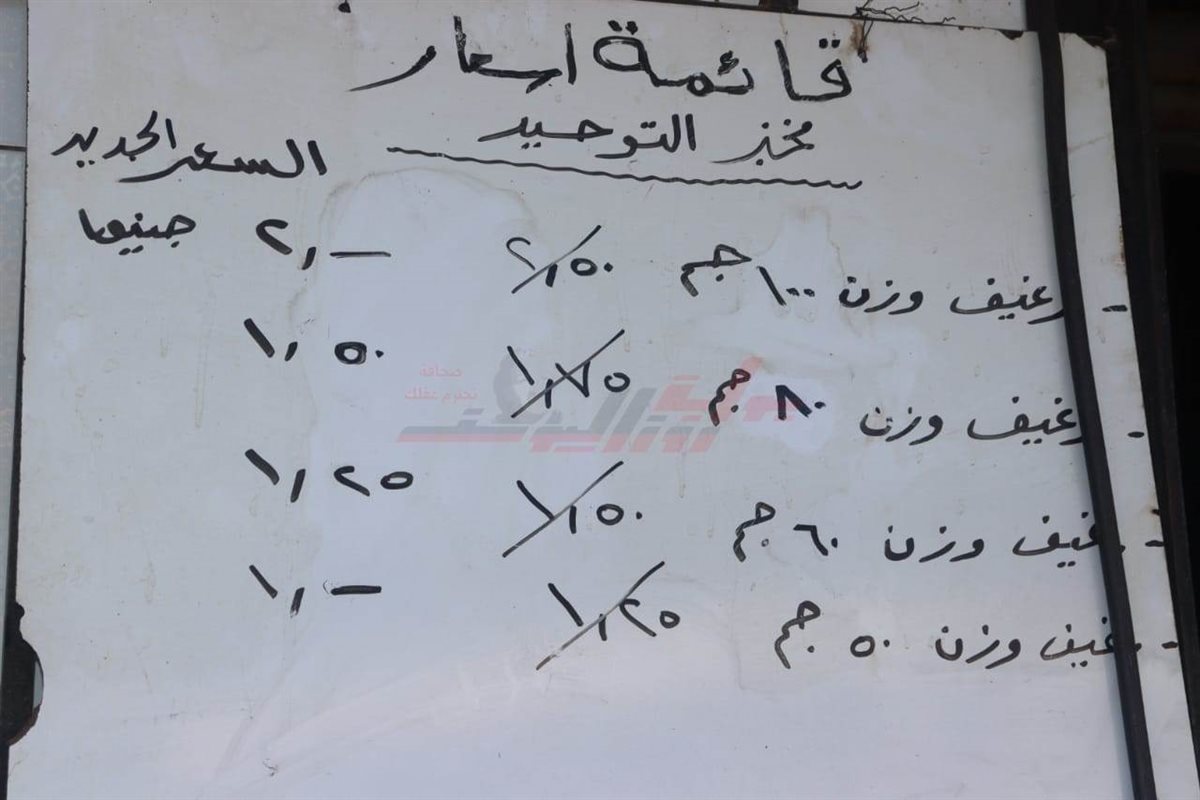 قائمة اسعار
مخبز التوحيد
السعر الجديد
- رغيف وزن ١٠٠ جم ٢,٥٠ ٢,- جنيها
- رغيف وزن ٨٠ جم ١,٧٥ ١,٥٠
- رغيف وزن ٦٠ جم ١,٥٠ ١,٢٥
- رغيف وزن ٥٠ جم ١,٢٥ ١,-
صحافة
تحترم عقلك